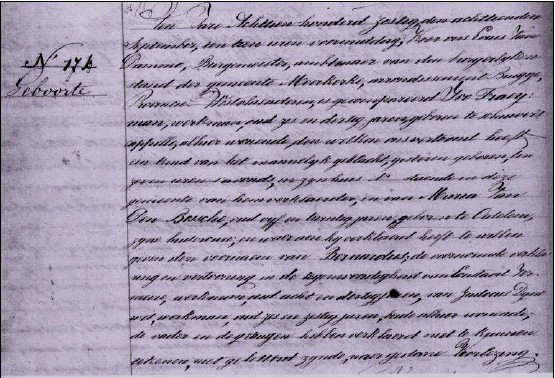 N 174
Geboorte
Ten Jare achttien honderd zestig, den achttienden
september, om tien uren voormiddag, Voor ons Louis Van
Damme, Burgemeester, ambtenaar van den burgerlyken
stand der gemeente Moerkerke, arrondissement Brugge,
Provincie Westvlaanderen, is gecompareerd Ivo Traey-
man, werkman, oud zes en dertig jaren, geboren te
cappelle, alhier woonende, den welken ons vertoont heeft
een kind van het mannelyk geslacht, gisteren geboren, ten
uren s'avonds, in zyn huis staende in deze
gemeente van hem verklaarder, en van Maria Van
Den Bossche, oud vyf en twintig jaren, geboren te
zyne huisvrouw, en waer aen hy verklaerd heeft te willen
geven den voornaam van Bernardus; de voornoemde verklar-
ing en vertooning in de tegenwoordigheid van
werkman, oud acht en dertig jaren, en van
werkman, oud zes en zestig jaren, beide alhier woonende;
de vader en de getuigen hebben verklaerd niet te kunnen
teekenen, niet geletterd zynde, naer gedane Voorlezing.